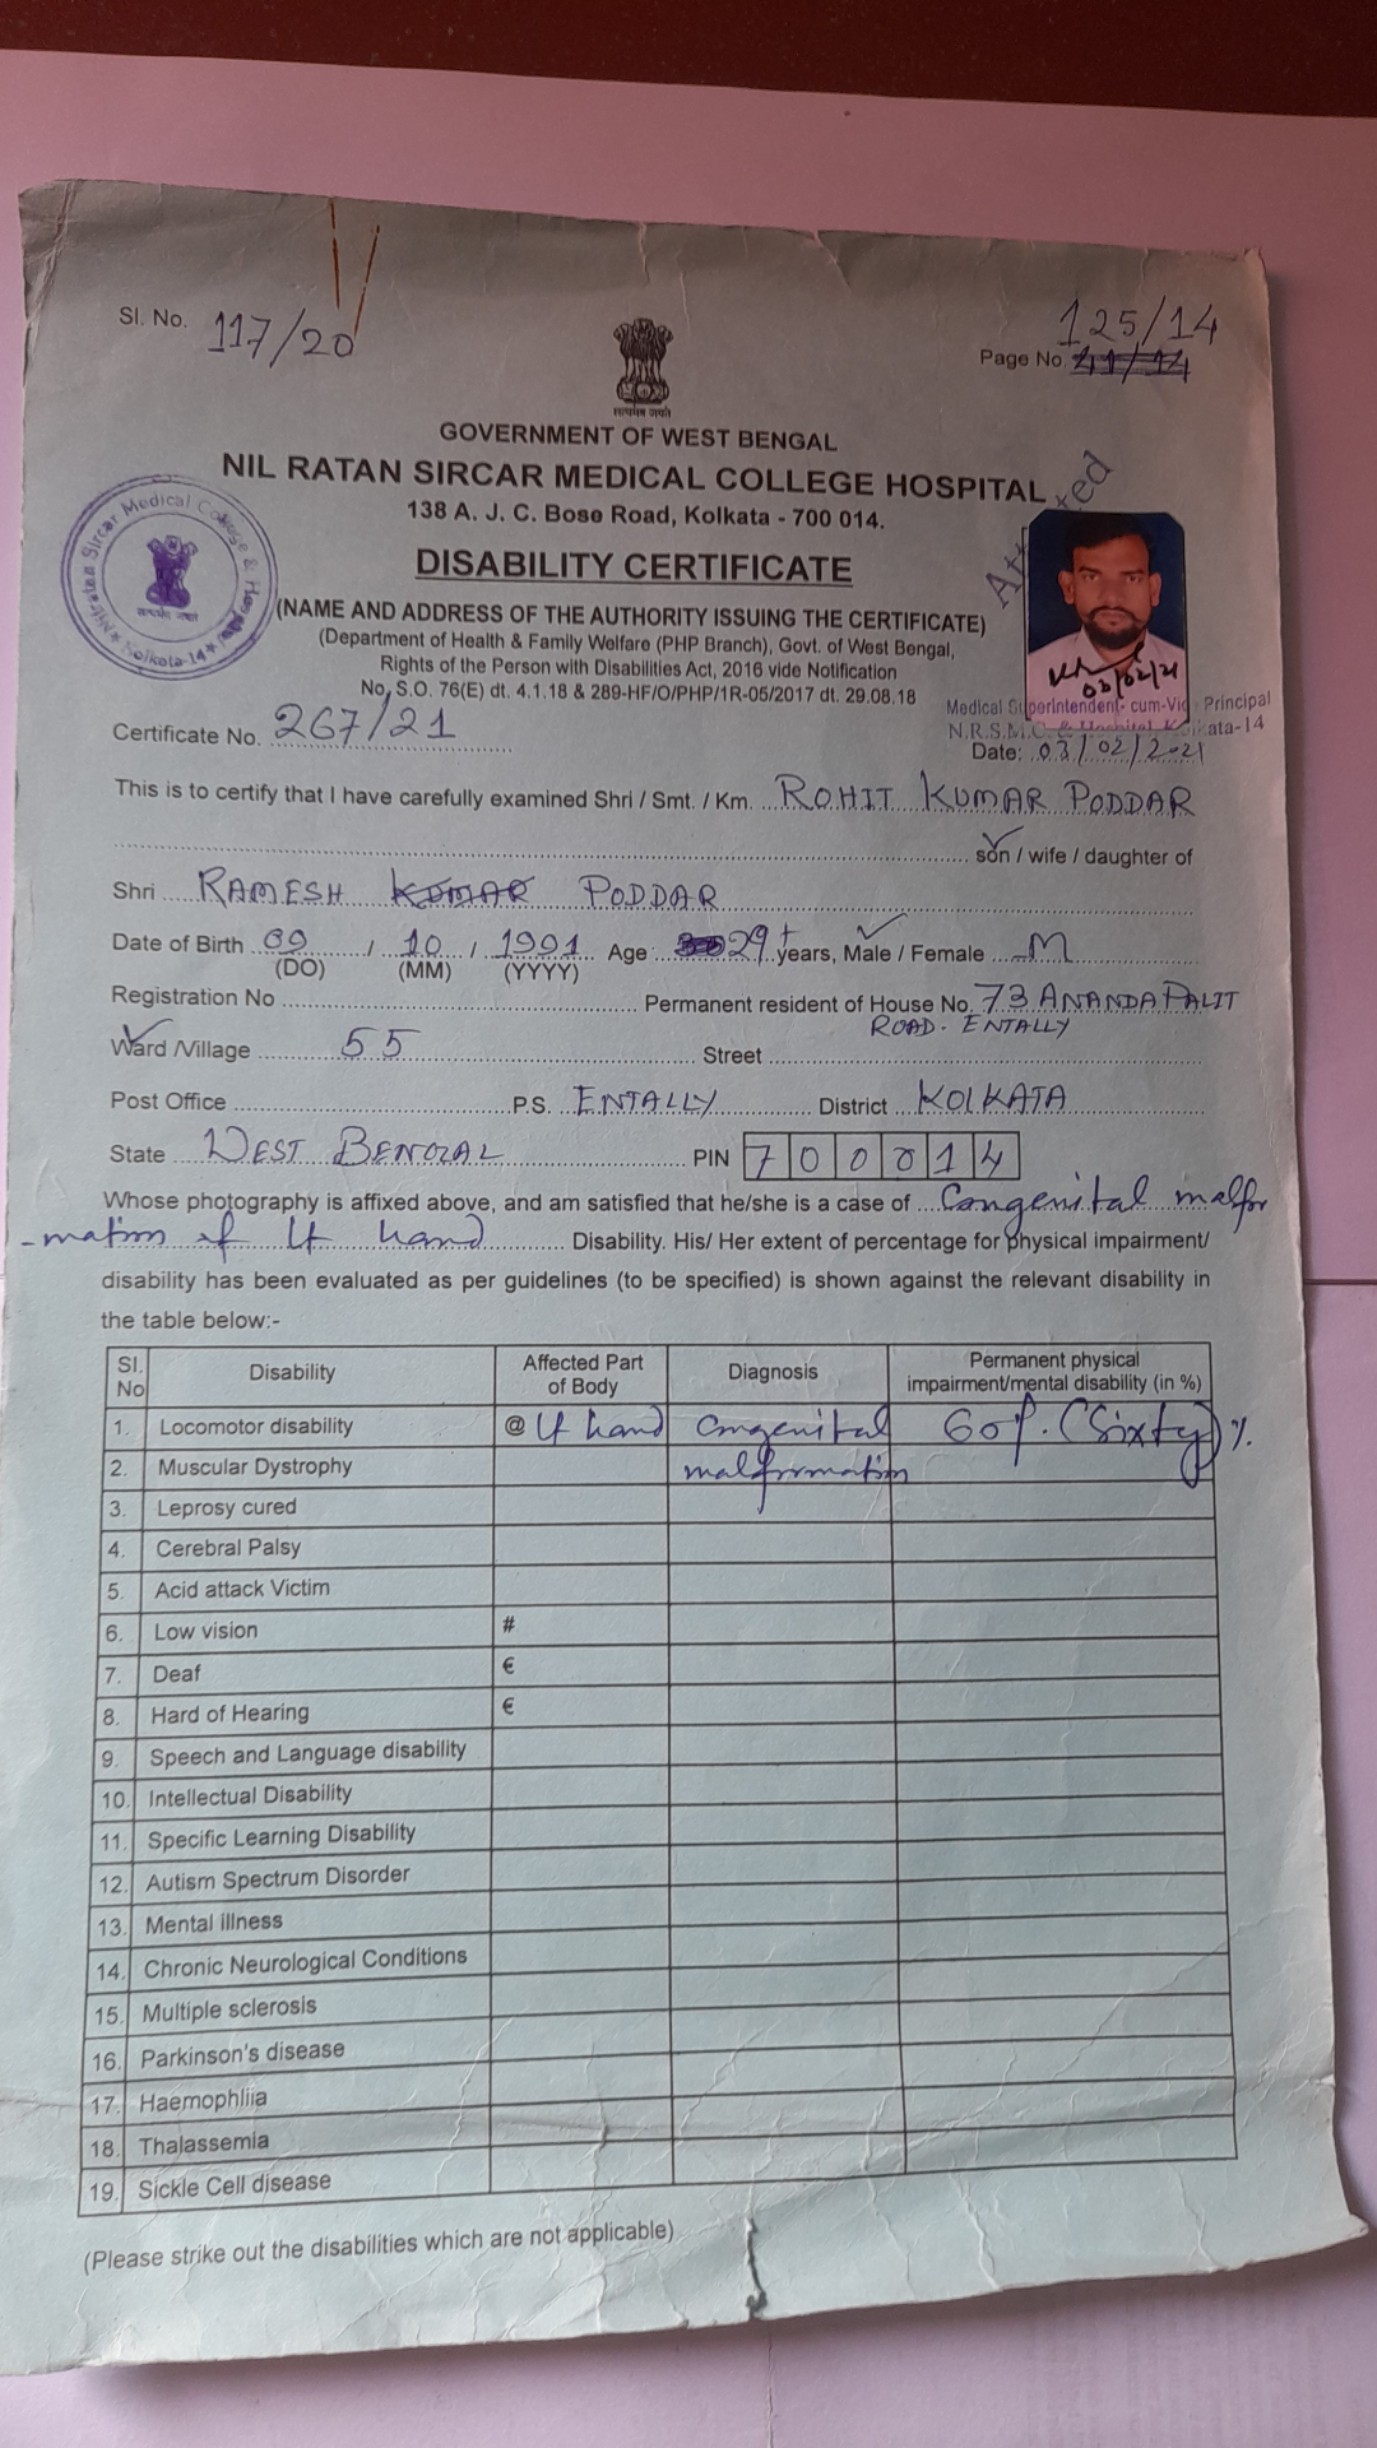 Sl. No. 117/20
125/14
Page No. 41/14
सत्यमेव जयते
GOVERNMENT OF WEST BENGAL
NIL RATAN SIRCAR MEDICAL COLLEGE HOSPITAL
138 A. J. C. Bose Road, Kolkata - 700 014.
DISABILITY CERTIFICATE
(NAME AND ADDRESS OF THE AUTHORITY ISSUING THE CERTIFICATE)
(Department of Health & Family Welfare (PHP Branch), Govt. of West Bengal,
Rights of the Person with Disabilities Act, 2016 vide Notification
No, S.O. 76(E) dt. 4.1.18 & 289-HF/O/PHP/1R-05/2017 dt. 29.08.18
Nilratan Sircar Medical College & Hospital Kolkata-14
03/02/21
Medical Superintendent-cum-Vice Principal
N.R.S.M.C. & Hospital, Kolkata-14
Certificate No. 267/21
Date: 03/02/2021
This is to certify that I have carefully examined Shri / Smt. / Km. ROHIT KUMAR PODDAR
son / wife / daughter of
Shri RAMESH KUMAR PODDAR
Date of Birth 09 / 10 / 1991 Age: 29+ years, Male / Female M
(DO) (MM) (YYYY)
Registration No Permanent resident of House No. 73 ANANDA PALIT
ROAD. ENTALLY
Ward /Village 55 Street
Post Office P.S. ENTALLY District KOLKATA
State WEST BENGAL PIN 700014
Whose photography is affixed above, and am satisfied that he/she is a case of Congenital malfor
-mation of Lt hand Disability. His/ Her extent of percentage for physical impairment/
disability has been evaluated as per guidelines (to be specified) is shown against the relevant disability in
the table below:-
Sl. No Disability Affected Part of Body Diagnosis Permanent physical impairment/mental disability (in %)
1. Locomotor disability @ Lt hand Congenital malformation 60%. (Sixty) %.
2. Muscular Dystrophy
3. Leprosy cured
4. Cerebral Palsy
5. Acid attack Victim
6. Low vision #
7. Deaf €
8. Hard of Hearing €
9. Speech and Language disability
10. Intellectual Disability
11. Specific Learning Disability
12. Autism Spectrum Disorder
13. Mental illness
14. Chronic Neurological Conditions
15. Multiple sclerosis
16. Parkinson's disease
17. Haemophliia
18. Thalassemia
19. Sickle Cell disease
(Please strike out the disabilities which are not applicable)